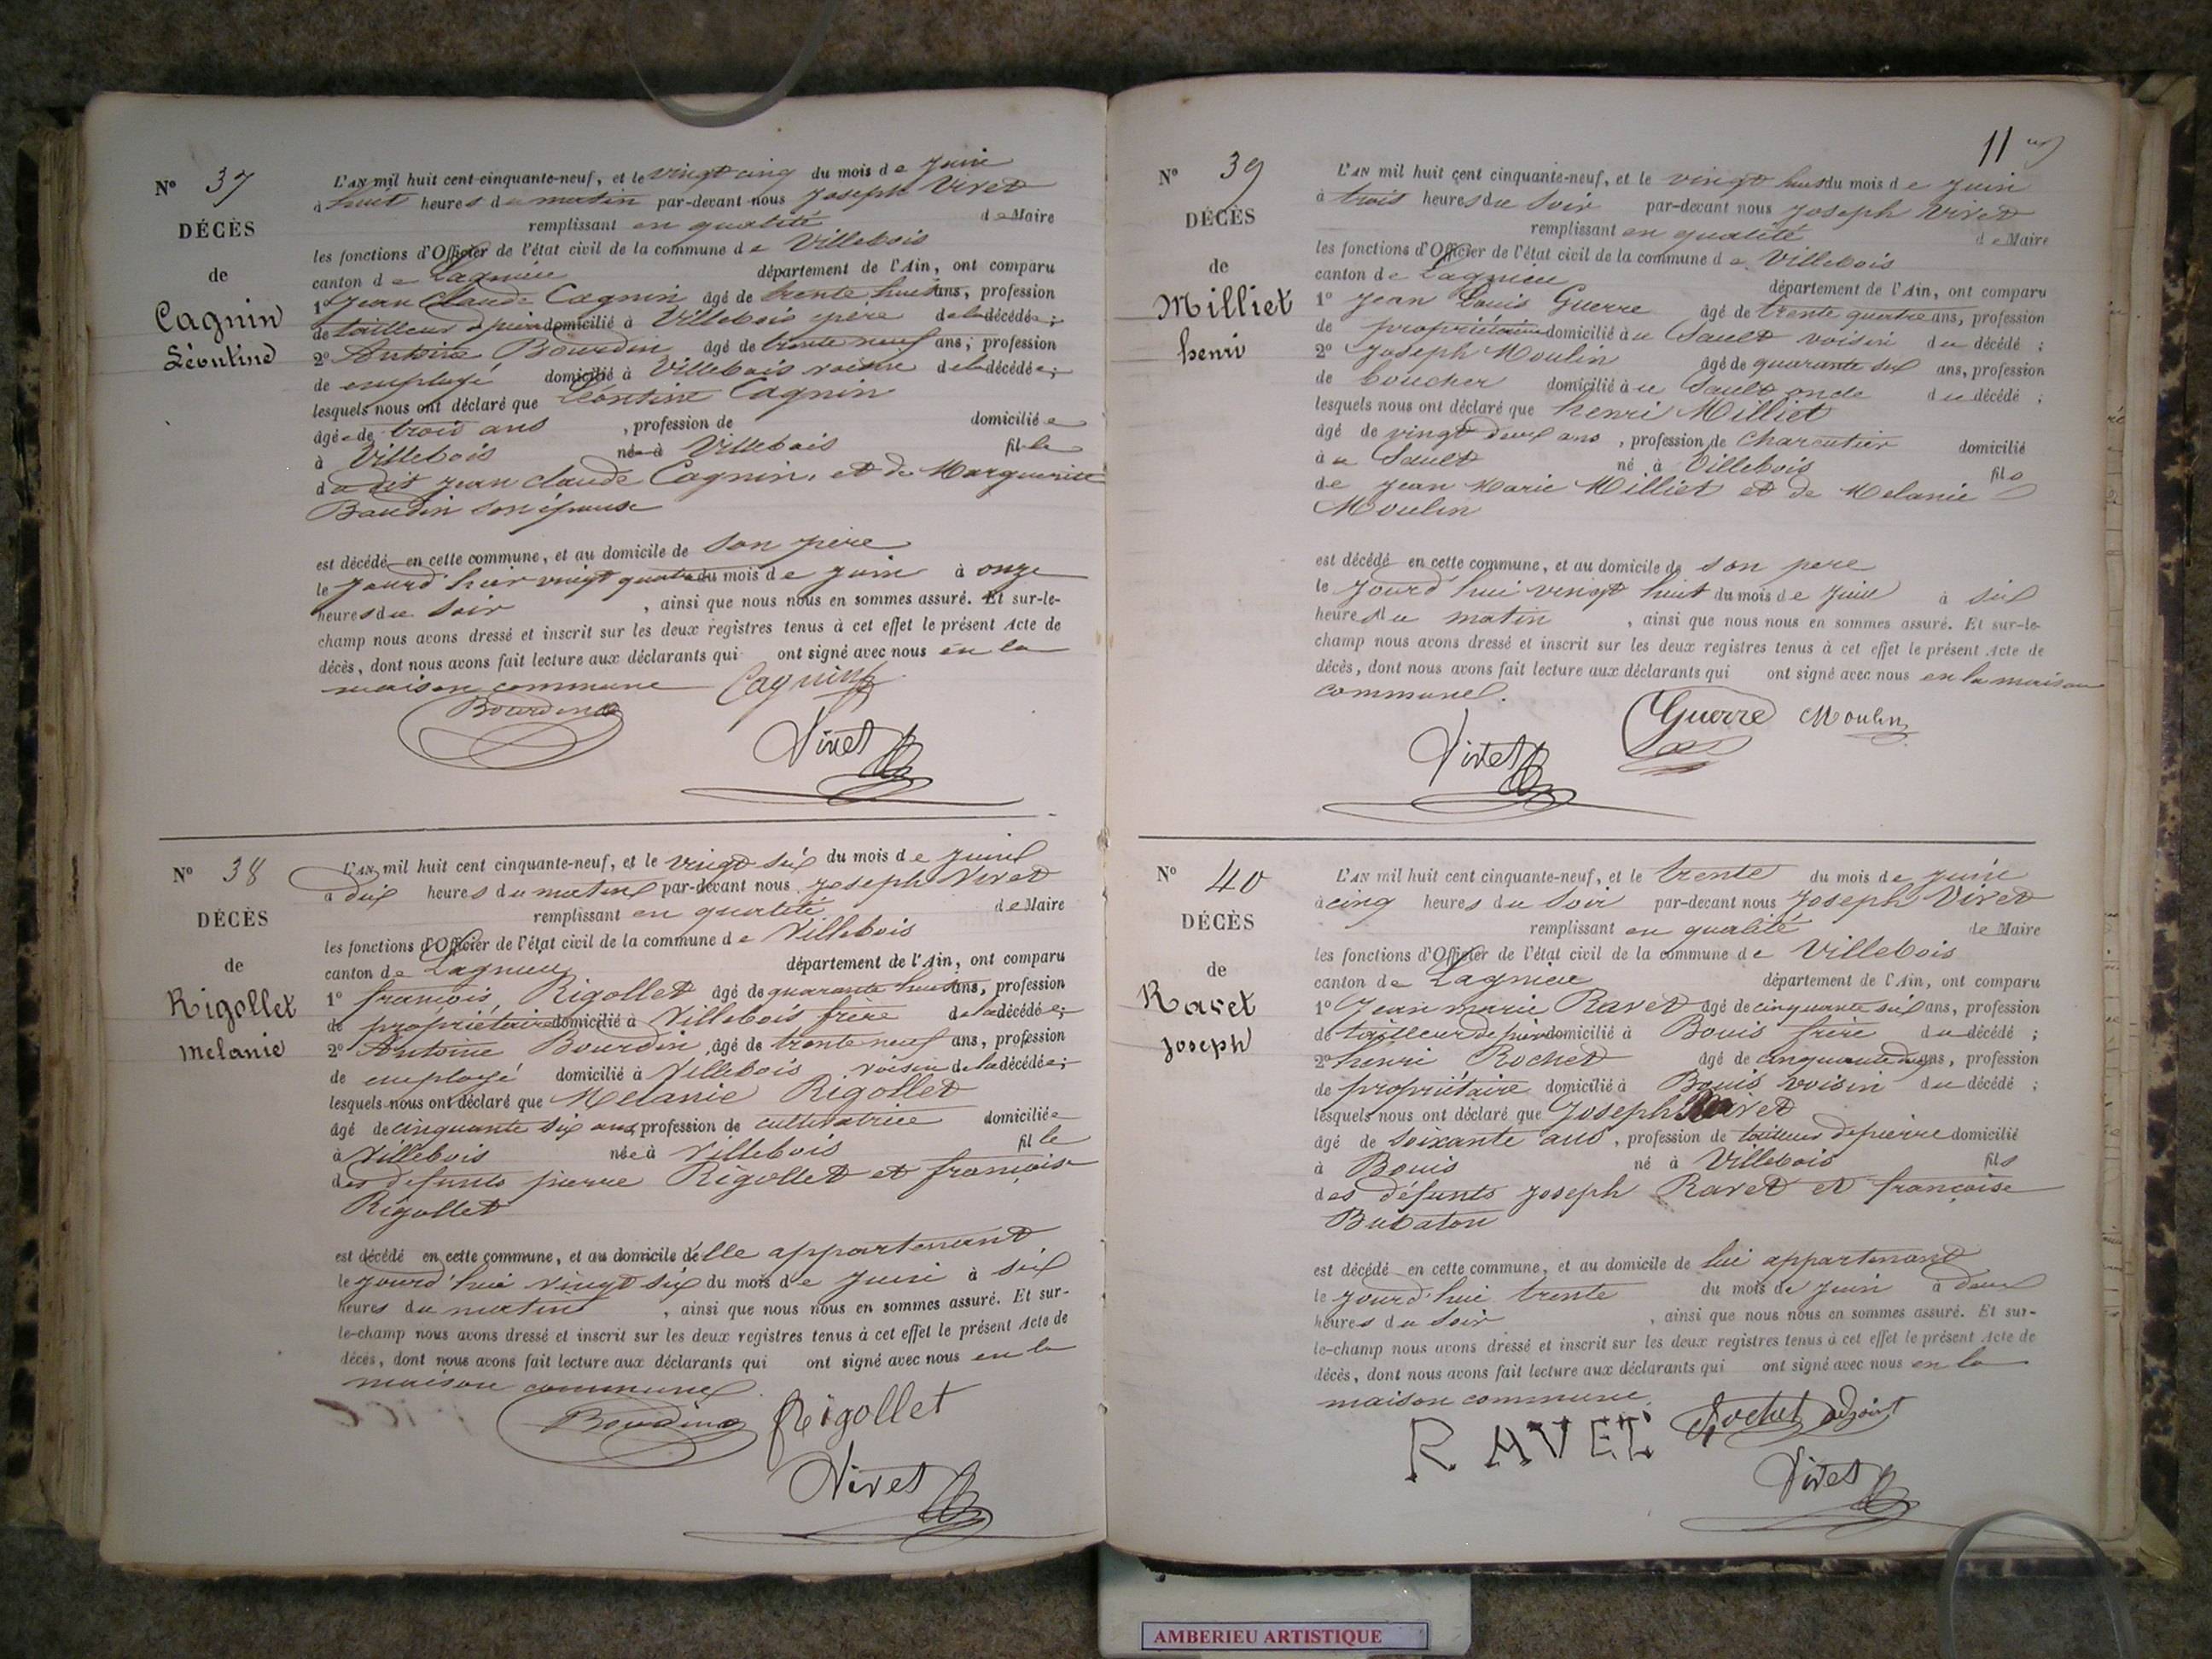 N° 37
DÉCÈS
de
Cagnin
Léontine
L'AN mil huit cent cinquante-neuf, et le vingt cinq du mois de juin
à huit heures du matin par-devant nous Joseph Vivet
remplissant en qualité de Maire
les fonctions d'Officier de l'état civil de la commune de Villebois
canton de Lagnieu département de l'Ain, ont comparu
1° Jean Claude Cagnin âgé de trente huit ans, profession
de tailleur de pierre domicilié à Villebois père de la décédée;
2° Antoine Bourdin âgé de trente neuf ans, profession
de employé domicilié à Villebois voisin de la décédée;
lesquels nous ont déclaré que Léontine Cagnin
âgée de trois ans, profession de domiciliée
à Villebois née à Villebois fille
du dit Jean Claude Cagnin, et de Marguerite
Baudin son épouse
est décédé en cette commune, et au domicile de son père
le jourd'hier vingt quatre du mois de juin à onze
heures du soir, ainsi que nous nous en sommes assuré. Et sur-le-
champ nous avons dressé et inscrit sur les deux registres tenus à cet effet le présent Acte de
décès, dont nous avons fait lecture aux déclarants qui ont signé avec nous en la
maison commune Cagnin
Bourdin
Vivet
N° 38
DÉCÈS
de
Rigollet
melanie
L'AN mil huit cent cinquante-neuf, et le vingt six du mois de juin
à dix heures du matin par-devant nous Joseph Vivet
remplissant en qualité de Maire
les fonctions d'Officier de l'état civil de la commune de Villebois
canton de Lagnieu département de l'Ain, ont comparu
1° françois Rigollet âgé de quarante huit ans, profession
de propriétaire domicilié à Villebois frère de la décédée;
2° Antoine Bourdin, âgé de trente neuf ans, profession
de employé domicilié à Villebois voisin de la décédée;
lesquels nous ont déclaré que Melanie Rigollet
âgé de cinquante six ans, profession de cultivatrice domiciliée
à Villebois née à Villebois fille
des defunts pierre Rigollet et françoise
Rigollet
est décédé en cette commune, et au domicile d'elle appartenant
le jourd'hui vingt six du mois de juin à six
heures du matin, ainsi que nous nous en sommes assuré. Et sur-
le-champ nous avons dressé et inscrit sur les deux registres tenus à cet effet le présent Acte de
décès, dont nous avons fait lecture aux déclarants qui ont signé avec nous en la
maison commune.
Bourdin Rigollet
Vivet
11
N° 39
DÉCÈS
de
Milliet
henri
L'AN mil huit cent cinquante-neuf, et le vingt huit du mois de juin
à trois heures du soir par-devant nous Joseph Vivet
remplissant en qualité de Maire
les fonctions d'Officier de l'état civil de la commune de Villebois
canton de Lagnieu département de l'Ain, ont comparu
1° Jean Louis Guerre âgé de trente quatre ans, profession
de propriétaire domicilié au Sault voisin du décédé;
2° Joseph Moulin âgé de quarante six ans, profession
de boucher domicilié au Sault oncle du décédé;
lesquels nous ont déclaré que henri Milliet
âgé de vingt deux ans, profession de charcutier domicilié
au Sault né à Villebois fils
de Jean Marie Milliet et de Melanie
Moulin
est décédé en cette commune, et au domicile de son pere
le jourd'hui vingt huit du mois de juin à six
heures du matin, ainsi que nous nous en sommes assuré. Et sur-le-
champ nous avons dressé et inscrit sur les deux registres tenus à cet effet le présent Acte de
décès, dont nous avons fait lecture aux déclarants qui ont signé avec nous en la maison
commune.
Guerre Moulin
Vivet
N° 40
DÉCÈS
de
Ravet
Joseph
L'AN mil huit cent cinquante-neuf, et le trente du mois de juin
à cinq heures du soir par-devant nous Joseph Vivet
remplissant en qualité de Maire
les fonctions d'Officier de l'état civil de la commune de Villebois
canton de Lagnieu département de l'Ain, ont comparu
1° Jean marie Ravet âgé de cinquante six ans, profession
de tailleur de pierre domicilié à Bouis frère du décédé;
2° henri Rochet âgé de cinquante ans, profession
de propriétaire domicilié à Bouis voisin du décédé;
lesquels nous ont déclaré que Joseph Ravet
âgé de soixante ans, profession de tailleur de pierre domicilié
à Bouis né à Villebois fils
des défunts Joseph Ravet et françoise
Bubaton
est décédé en cette commune, et au domicile de lui appartenant
le jourd'hui trente du mois de juin à deux
heures du soir, ainsi que nous nous en sommes assuré. Et sur-
le-champ nous avons dressé et inscrit sur les deux registres tenus à cet effet le présent Acte de
décès, dont nous avons fait lecture aux déclarants qui ont signé avec nous en la
maison commune.
RAVET Rochet adjoint
Vivet
AMBERIEU ARTISTIQUE